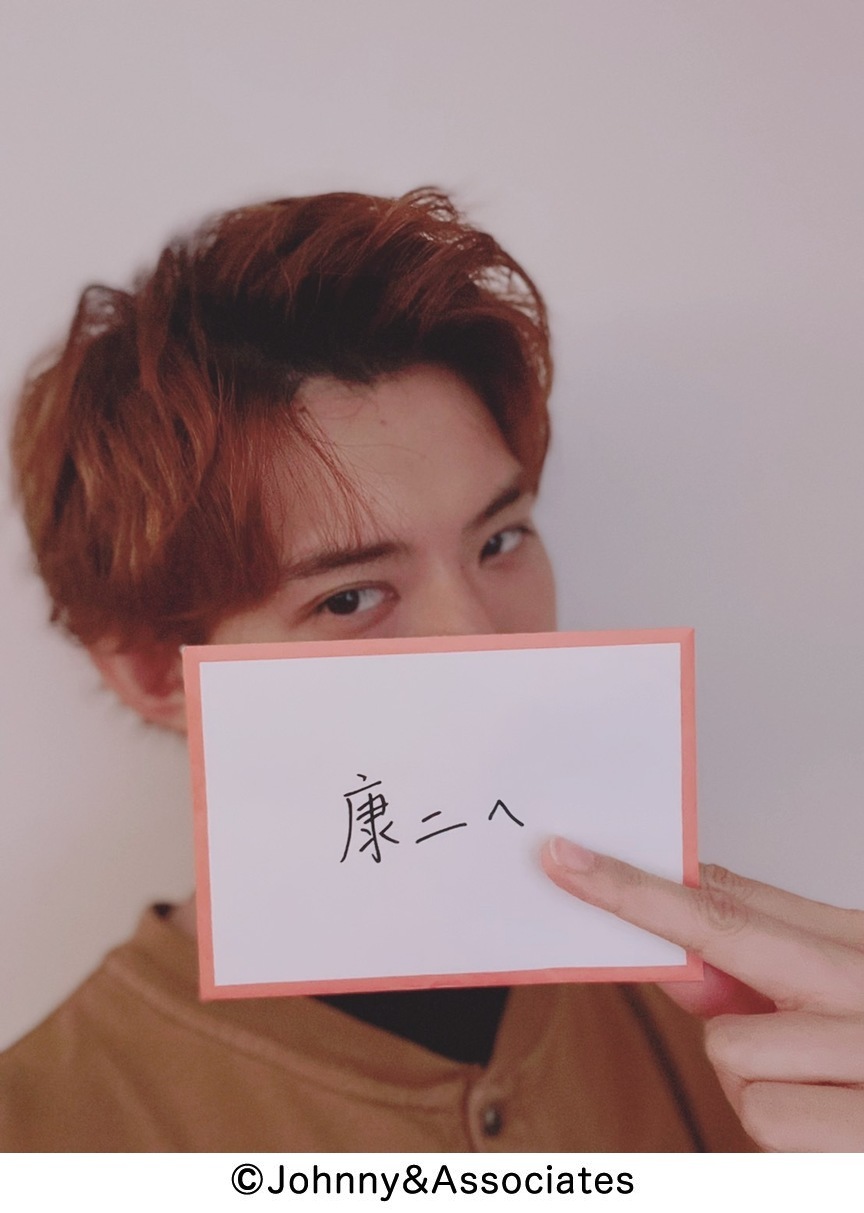 康二へ
©Johnny&Associates